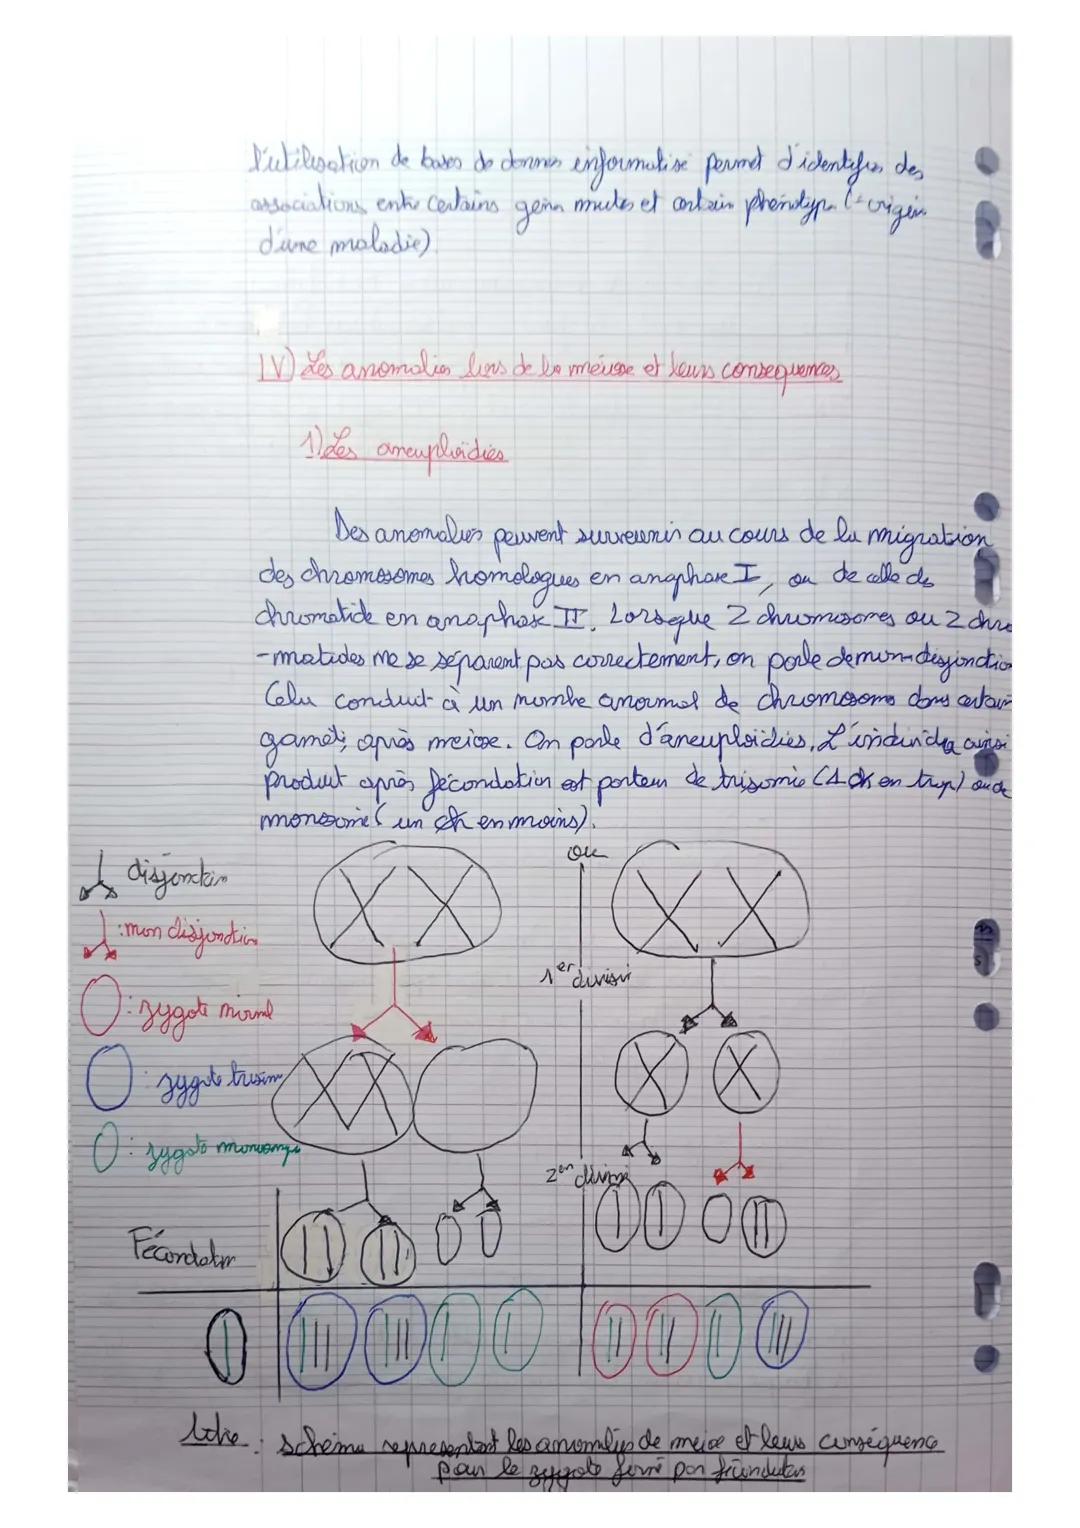 l'utilisation de bases de donnes informatisé permet d'identifier des
associations entre certains gènes mutés et certain phénotype (= origin
d'une maladie)
IV) Les anomalies lors de la méiose et leurs consequences
1) Les aneuploïdies
Des anomalies peuvent survenir au cours de la migration
des chromosomes homologues en anaphase I, ou de celle des
chromatide en anaphase II. Lorsque 2 chromosomes ou 2 chro
-matides ne se séparent pas correctement, on parle de non-disjonction
Cela conduit à un nombre anormal de chromosome dans certain
gamète après meiose. On parle d'aneuploïdies. L'individu ainsi
produit après fécondation est porteur de trisomie (1 ch en trop) ou de
monosomie (un ch en moins).
disjonction
ou
: non disjonction
1er division
: zygote normal
: zygote trisom
: zygote monosomy
2em division
Fécondation
titre : schéma representant les anomalies de meiose et leurs conséquence
pour le zygote formé par fécondation